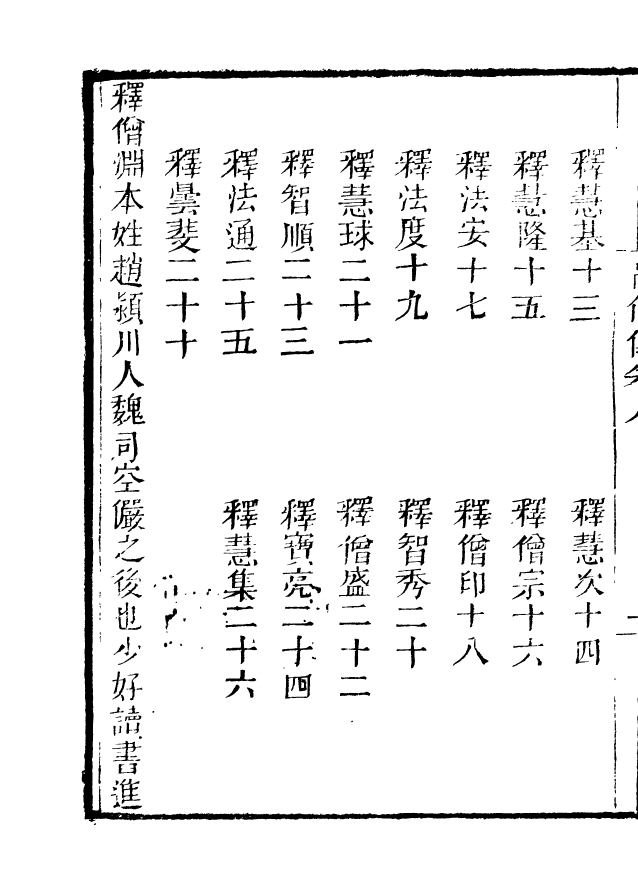 釋慧基十三
釋慧次十四
釋慧隆十五
釋僧宗十六
釋法安十七
釋僧印十八
釋法度十九
釋智秀二十
釋慧球二十一
釋僧盛二十二
釋智順二十三
釋寶亮二十四
釋法通二十五
釋慧集二十六
釋曇斐二十十
釋僧淵本姓趙潁川人魏司空儼之後也少好讀書進